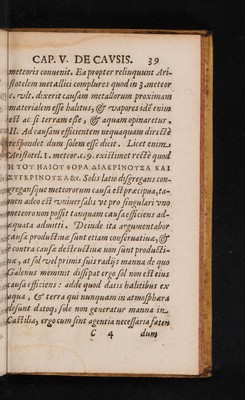 CAP. V. DE CAVSIS. 39
meteoris conuenit. Ea propter relinquunt Ari-
stotelem metallici complures quod in 3. meteor
c. vlt. dixerit causam metallorum proximam
materialem esse halitus, & vapores idē enim
est ac si terram esse, & aquam opinaretur.
Ad causam efficientem nequaquam directè
respondet dum solem esse dicit. Licet enim
Aristotel. 1. meteor. c. 9. existimet rectè quod
Η ΤΟΥ ΗΛΙΟΥ ΦΟΡΑ ΔΙΑΚΡΙΝΟΥΣΑ ΚΑΙ
ΣΥΓΚΡΙΝΟΥΣΑ &c. Solis latio disgregans con-
gregansque meteororum causa est præcipua, ta-
men adeo est vniuersalis vt pro singulari vno
meteoro non possit tanquam causa efficiens ad-
æquata admitti. Deinde ita argumentabor
causæ productiuæ sunt etiam conseruatiuæ, &
è contra causæ destructiuæ non sunt producti-
uæ, at sol vel primis suis radijs manna de quo
Galenus meminit dissipat ergo sol non est eius
causa efficiens: adde quod datis halitibus ex
aqua, & terra qui nunquam in atmosphæra
desunt datoq; sole non generatur manna in
Castilia, ergo cum sint agentia necessaria faten
C 4 dum